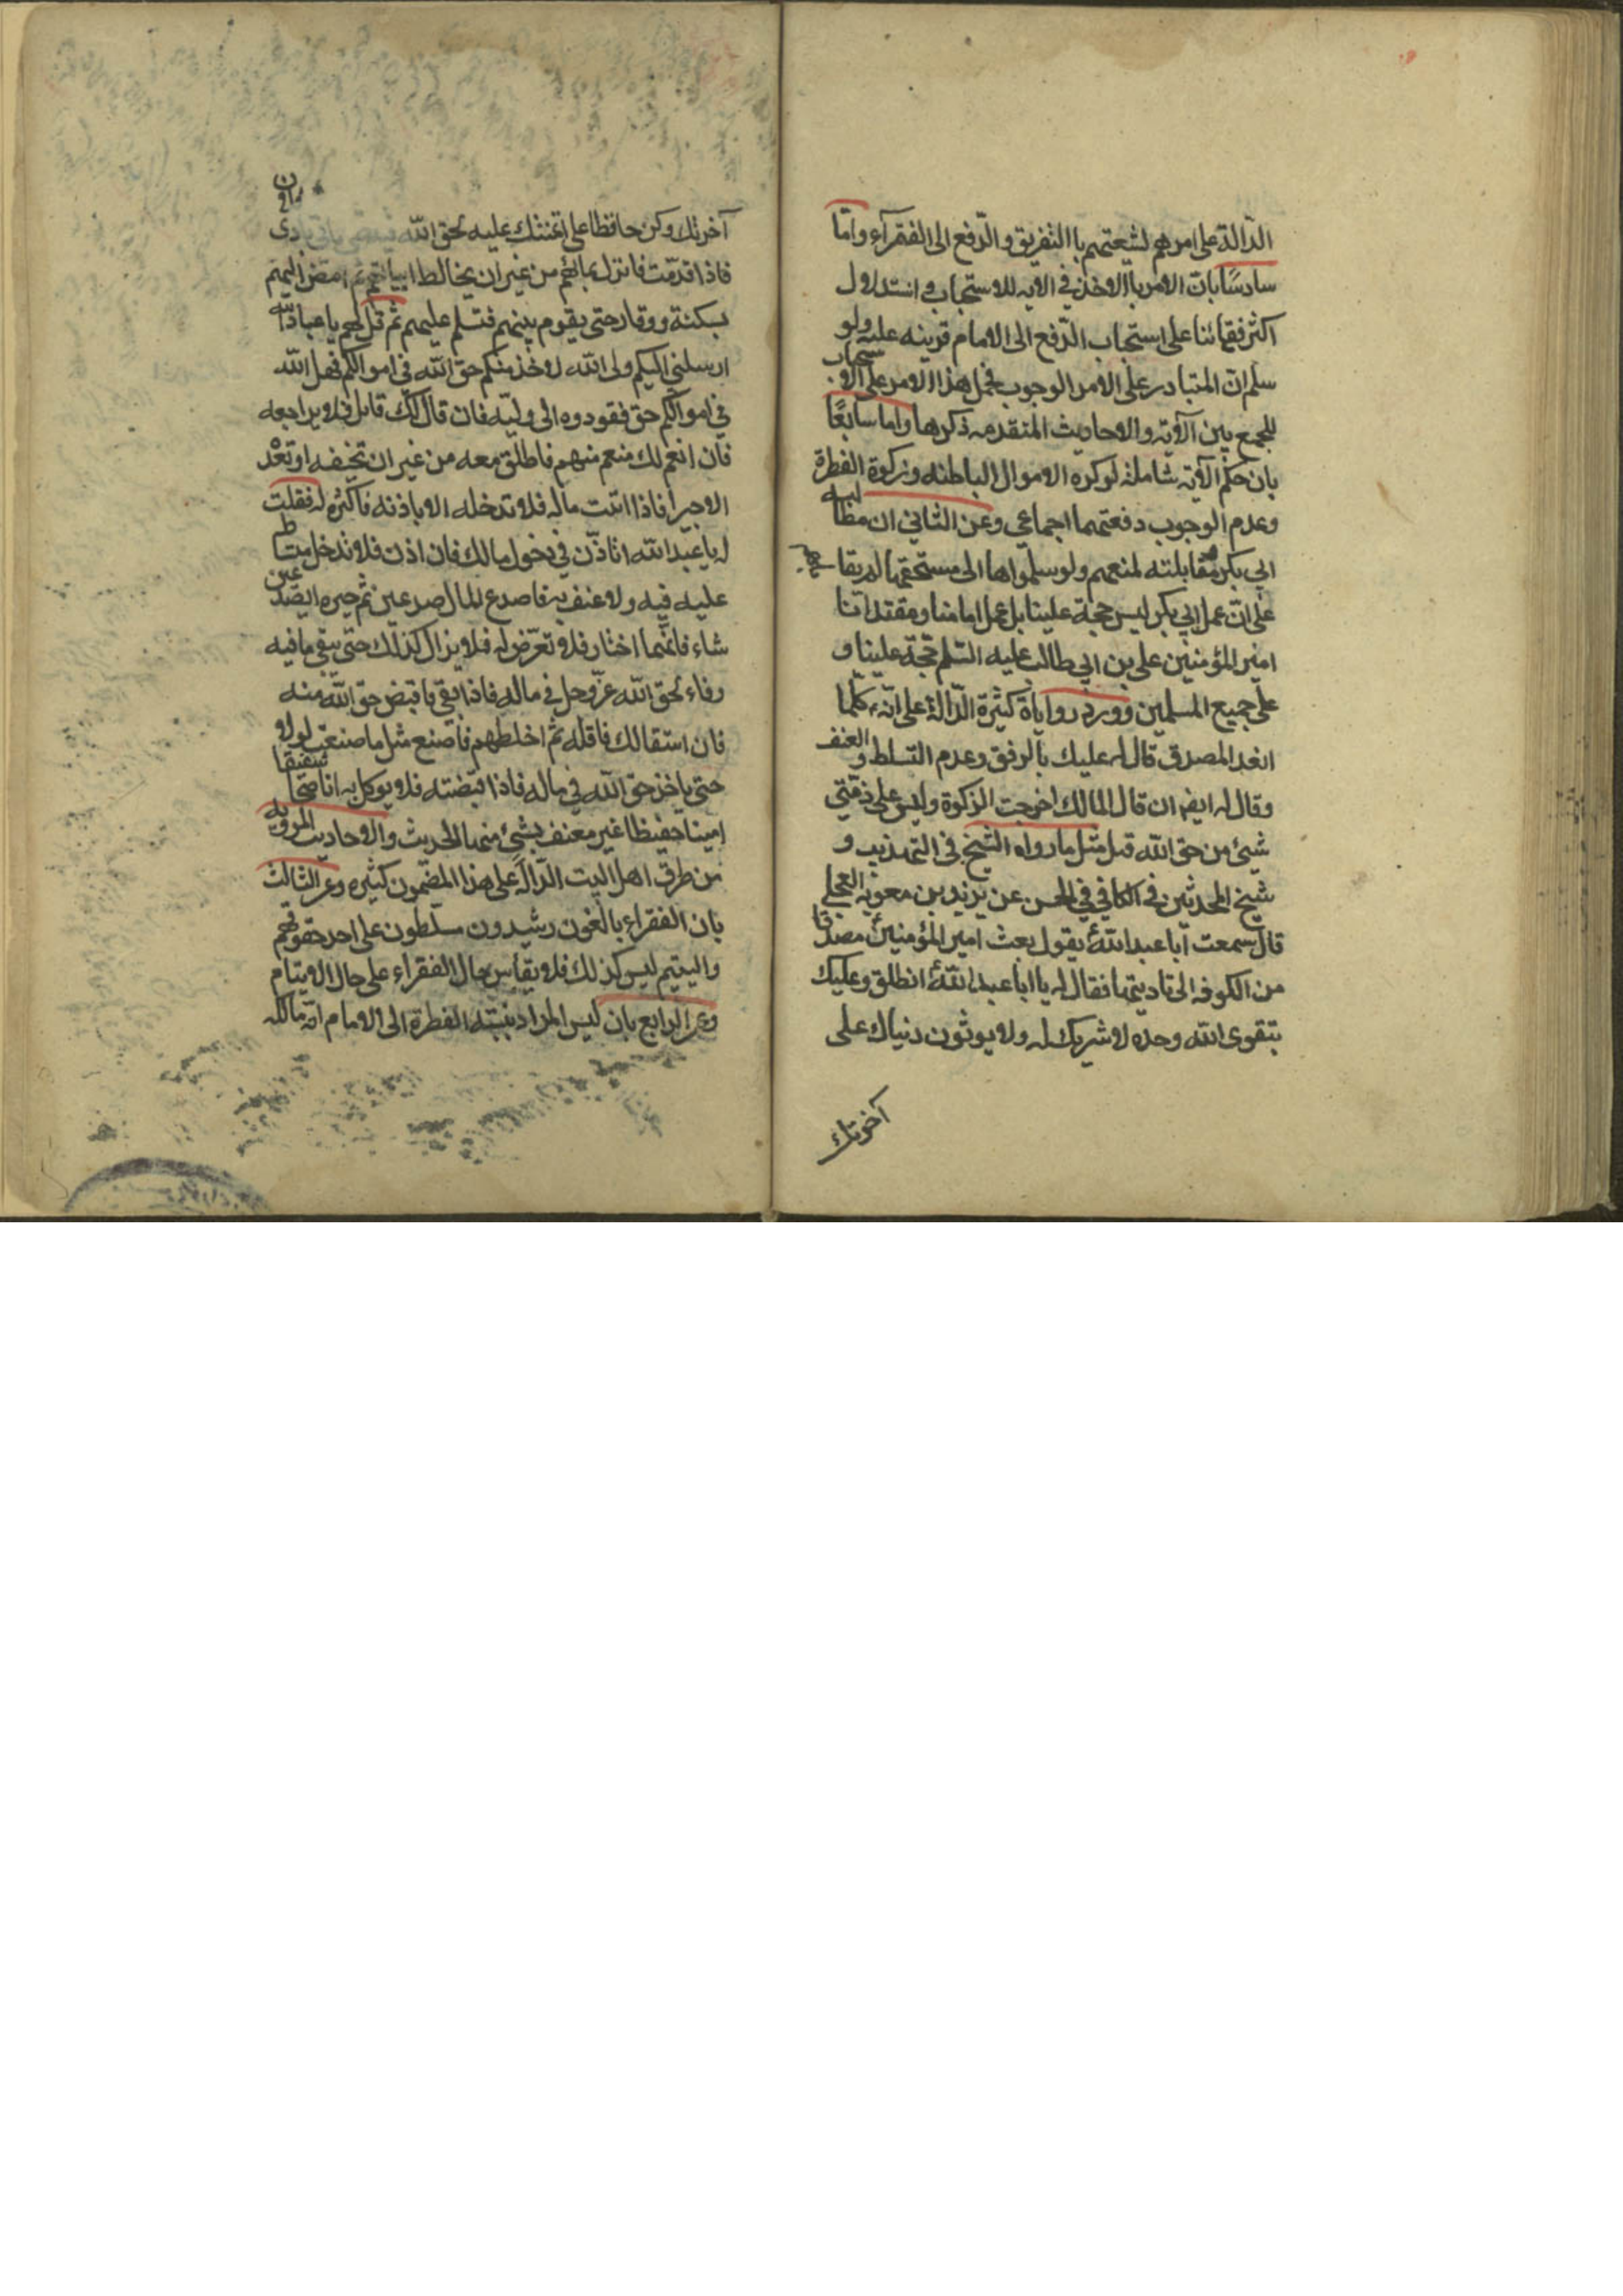 الدالة على امرهم لشيعتهم باالتفريق والدفع الى الفقرآء واما
سادسًا بات الامر باالاخذ في الايه للاستحباب و استدلال
اكثر فقهائنا على استحباب الدفع الى الامام قرينه عليه ولو
سلم ان المتبادر على الامر الوجوب فحمل هذا الامر على الاستحباب
للجمع بين الآية والاحاديث المتقدمه ذكرها واما سابعًا
بان حكم الآية شاملة لوكره الاموال الباطنه وزكوة الفطرة
وعدم الوجوب دفعتهما اجماعي وعن الثاني ان مطالبه
ابي بكر مقابلته لمنعهم ولو سلموا ها الى مستحقها لم يقا
على ان عمل ابي بكر ليس حجة علينا بل عمل امامنا ومقتداتنا
امير المؤمنين علي بن ابي طالب عليه السلم حجة علينا و
على جميع المسلمين وورد رواياة كثيرة الدالة على انه كلما
انفد المصدق قال له عليك بالرفق وعدم التسلط و العنف
وقال له ايضا ان قال المالك اخرجت الزكوة وليس على ذمتي
شيئ من حق الله قبل مثل ما رواه الشيخ في التهذيب و
شيخ المحدثين في الكافي في الحسن عن بريد بن معويه العجلي
قال سمعت ابا عبد الله يقول بعث امير المؤمنين مصدقا
من الكوفه الى باديتها فقال له يا ابا عبد الله انطلق وعليك
بتقوى الله وحده لا شريك له ولا يوثون دنياك على
آخرتك
آخرتك وكن حافظا على ائتمنتك عليه لحق الله
فاذا قدمت فانزل بمائهم من غير ان يخالط ابياتهم ثم امض اليهم
بسكنة ووقار حتى يقوم بينهم فتسلم عليهم ثم قل لهم يا عباد الله
ارسلني اليكم ولي الله لاخذ منكم حق الله في اموالكم فهل الله
في اموالكم حق فقودوه الى وليه فان قال لك قائل فلا يراجعه
فان انعم لك منعم منهم فاطلق معه من غير ان تخيفه او تعد
الا خيرا فاذا اتيت ماله فلا تدخله الا باذنه فاكثره له فقلت
له يا عبد الله اتاذن في دخول مالك فان اذن فلا تدخل متسلط
عليه فيه ولا عنف به فاصدع المال صدعين ثم خيره اي الصدعين
شاء فاتهما اختار فلا تعرض له فلا يزال كذلك حتى يبقى ما فيه
وفاء لحق الله عز وجل في ماله فاذا بقي فاقبض حق الله منه
فان استقالك فاقله ثم اخلطهم فاصنع مثل ما صنعت لولا
حتى ياخذ حق الله في ماله فاذا قبضته فلا يوكل به اناصحا شفيقا
امينا حفيظا غير معنف بشئ منها الحديث والاحاديث المرويه
من طرق اهل البيت الدالة على هذا المضمون كثيره وعن الثالث
بان الفقراء بالغون رشيدون مسلطون على احد حقوقهم
واليتيم ليس كذلك فلا يقاس حال الفقراء على حال الايتام
وعن الرابع بان ليس المراد بنسبته الفطرة الى الامام انه مالكه